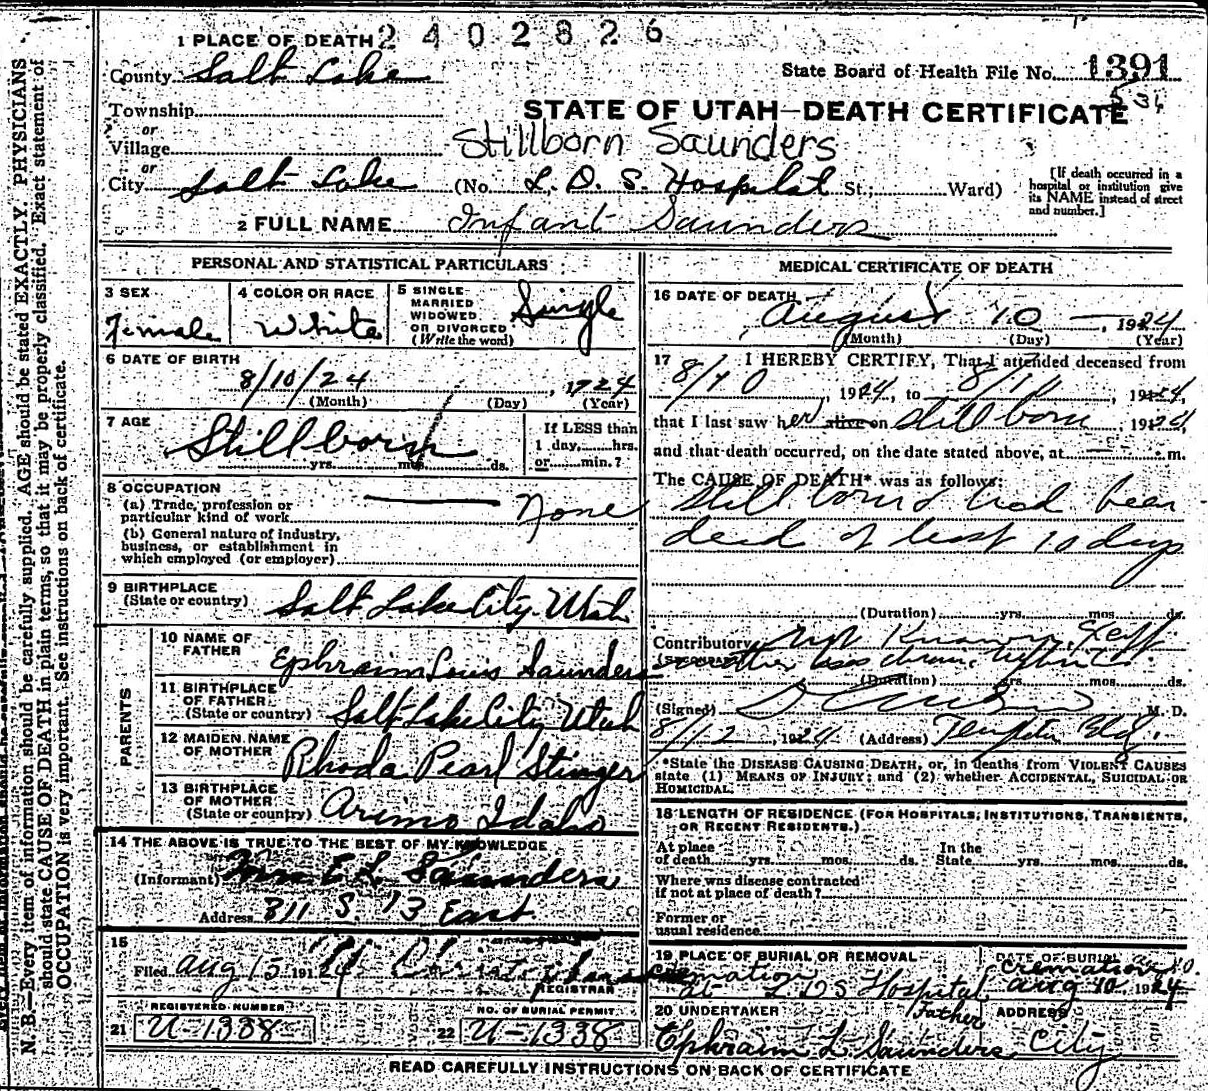 2402826
1 PLACE OF DEATH
County Salt Lake
State Board of Health File No. 1391
Township
STATE OF UTAH—DEATH CERTIFICATE
or
Village
Stillborn Saunders
or
City Salt Lake (No. L. D. S. Hospital St.; Ward)
[If death occurred in a hospital or institution give its NAME instead of street and number.]
2 FULL NAME Infant Saunders
PERSONAL AND STATISTICAL PARTICULARS
3 SEX
Female
4 COLOR OR RACE
White
5 SINGLE
MARRIED
WIDOWED
OR DIVORCED
(Write the word)
Single
6 DATE OF BIRTH
8/10/24, 1924
(Month) (Day) (Year)
7 AGE
Stillborn
yrs. mos. ds.
If LESS than
1 day, hrs.
or min.?
8 OCCUPATION
(a) Trade, profession or
particular kind of work
None
(b) General nature of industry,
business, or establishment in
which employed (or employer)
9 BIRTHPLACE
(State or country) Salt Lake City Utah
PARENTS
10 NAME OF
FATHER Ephraim Louis Saunders
11 BIRTHPLACE
OF FATHER
(State or country) Salt Lake City Utah
12 MAIDEN NAME
OF MOTHER Rhoda Pearl Stinger
13 BIRTHPLACE
OF MOTHER
(State or country) Arimo Idaho
14 THE ABOVE IS TRUE TO THE BEST OF MY KNOWLEDGE
(Informant) Mrs E L Saunders
Address 811 S. 13 East
15
Filed Aug 15 1924
REGISTRAR
REGISTERED NUMBER
21 U-1338
NO. OF BURIAL PERMIT
22 U-1338
MEDICAL CERTIFICATE OF DEATH
16 DATE OF DEATH
August 10, 1924
(Month) (Day) (Year)
17 I HEREBY CERTIFY, That I attended deceased from
8/10, 1924, to 8/10, 1924,
that I last saw her alive on stillborn, 1924,
and that death occurred, on the date stated above, at — m.
The CAUSE OF DEATH* was as follows:
Still born & had been
dead at least 10 days
(Duration) yrs. mos. ds.
Contributory Not Known
(Duration) yrs. mos. ds.
(Signed) M. D.
8/12, 1924 (Address) Templeton Bldg.
*State the DISEASE CAUSING DEATH, or, in deaths from VIOLENT CAUSES
state (1) MEANS OF INJURY; and (2) whether ACCIDENTAL, SUICIDAL OR
HOMICIDAL.
18 LENGTH OF RESIDENCE (FOR HOSPITALS, INSTITUTIONS, TRANSIENTS,
OR RECENT RESIDENTS.)
At place
of death yrs. mos. ds.
In the
State yrs. mos. ds.
Where was disease contracted
if not at place of death?
Former or
usual residence
19 PLACE OF BURIAL OR REMOVAL
Cremation
at L D S Hospital
DATE OF BURIAL
Cremation
Aug 10, 1924
20 UNDERTAKER
Father
Ephraim L Saunders
ADDRESS
City
READ CAREFULLY INSTRUCTIONS ON BACK OF CERTIFICATE
N. B.—Every item of information should be carefully supplied. AGE should be stated EXACTLY. PHYSICIANS
should state CAUSE OF DEATH in plain terms, so that it may be properly classified. Exact statement of
OCCUPATION is very important. See instructions on back of certificate.